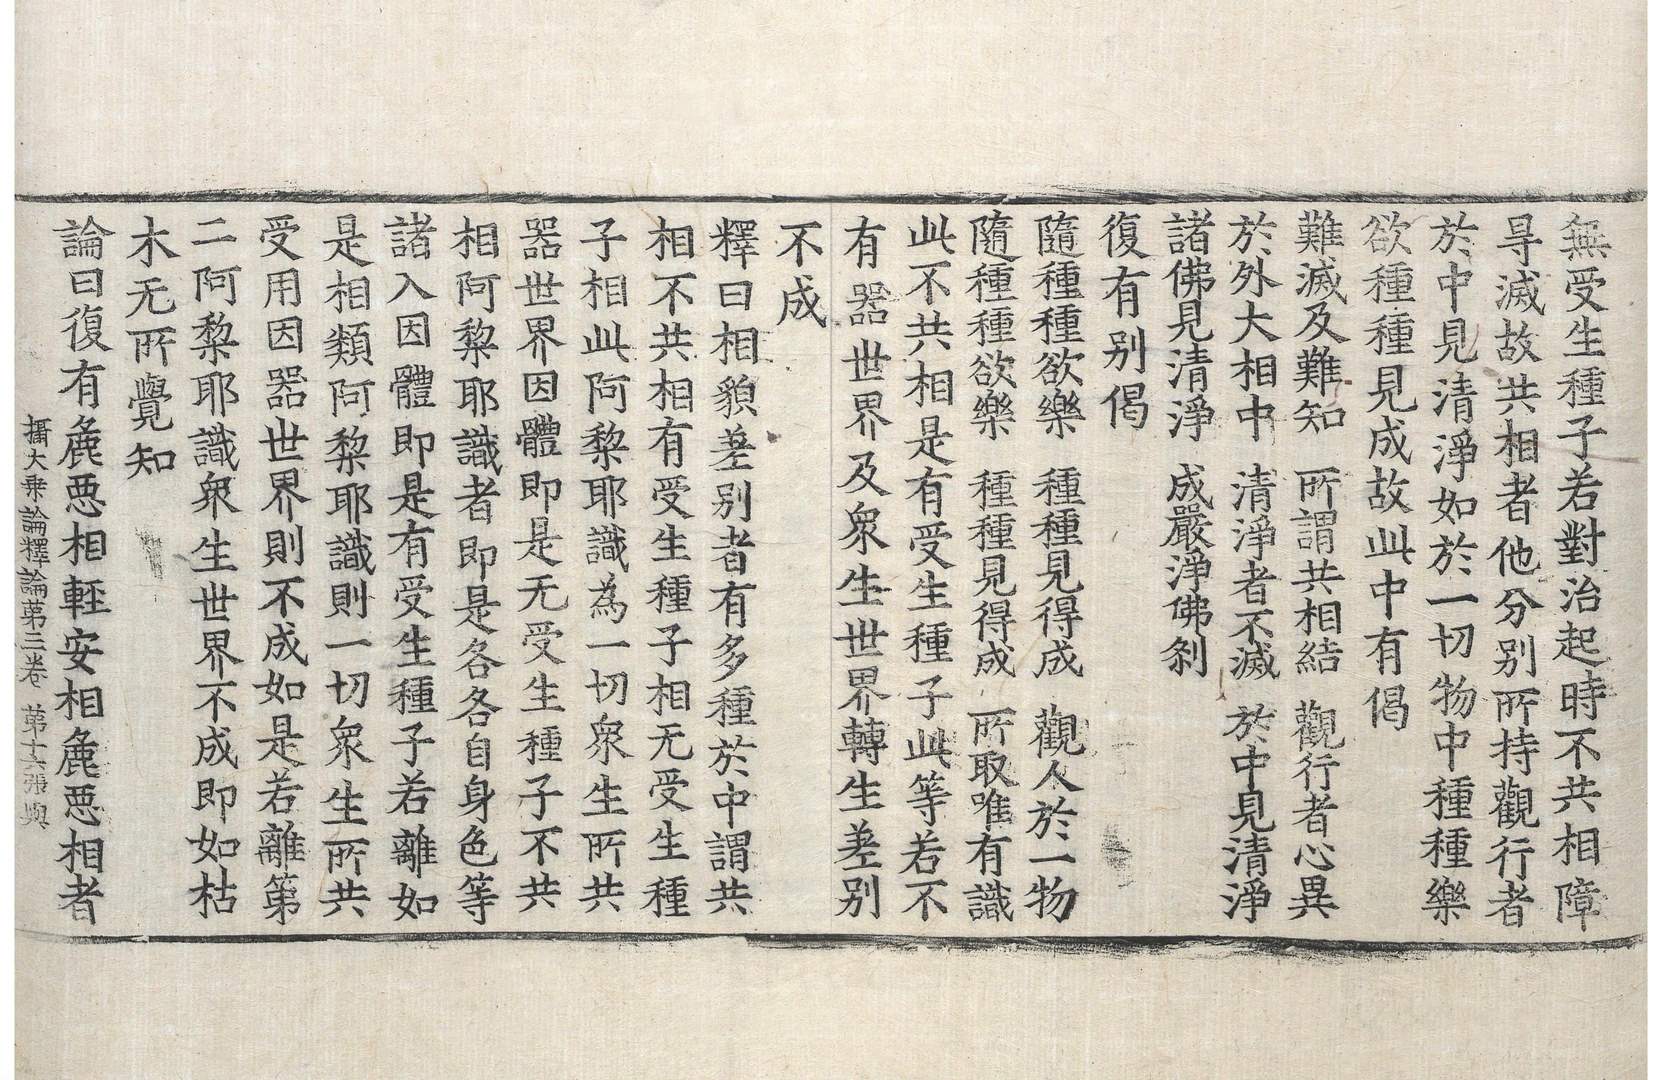 無受生種子若對治起時不共相障
㝵滅故共相者他分别所持觀行者
於中見清淨如於一切物中種種樂
欲種種見成故此中有偈
難滅及難知　所謂共相結　觀行者心異
於外大相中　清淨者不滅　於中見清淨
諸佛見清淨　成嚴淨佛刹
復有别偈
隨種種欲樂　種種見得成　觀人於一物
隨種種欲樂　種種見得成　所取唯有識
此不共相是有受生種子此等若不
有器世界及衆生世界轉生差别
不成
釋曰相貌差别者有多種於中謂共
相不共相有受生種子相无受生種
子相此阿棃耶識為一切衆生所共
器世界因體即是无受生種子不共
相阿棃耶識者即是各各自身色等
諸入因體即是有受生種子若離如
是相類阿棃耶識則一切衆生所共
受用因器世界則不成如是若離第
二阿棃耶識衆生世界不成即如枯
木无所覺知
論曰復有麁悪相輕安相麁悪相者
攝大乗論釋論苐三卷　苐十六張　與